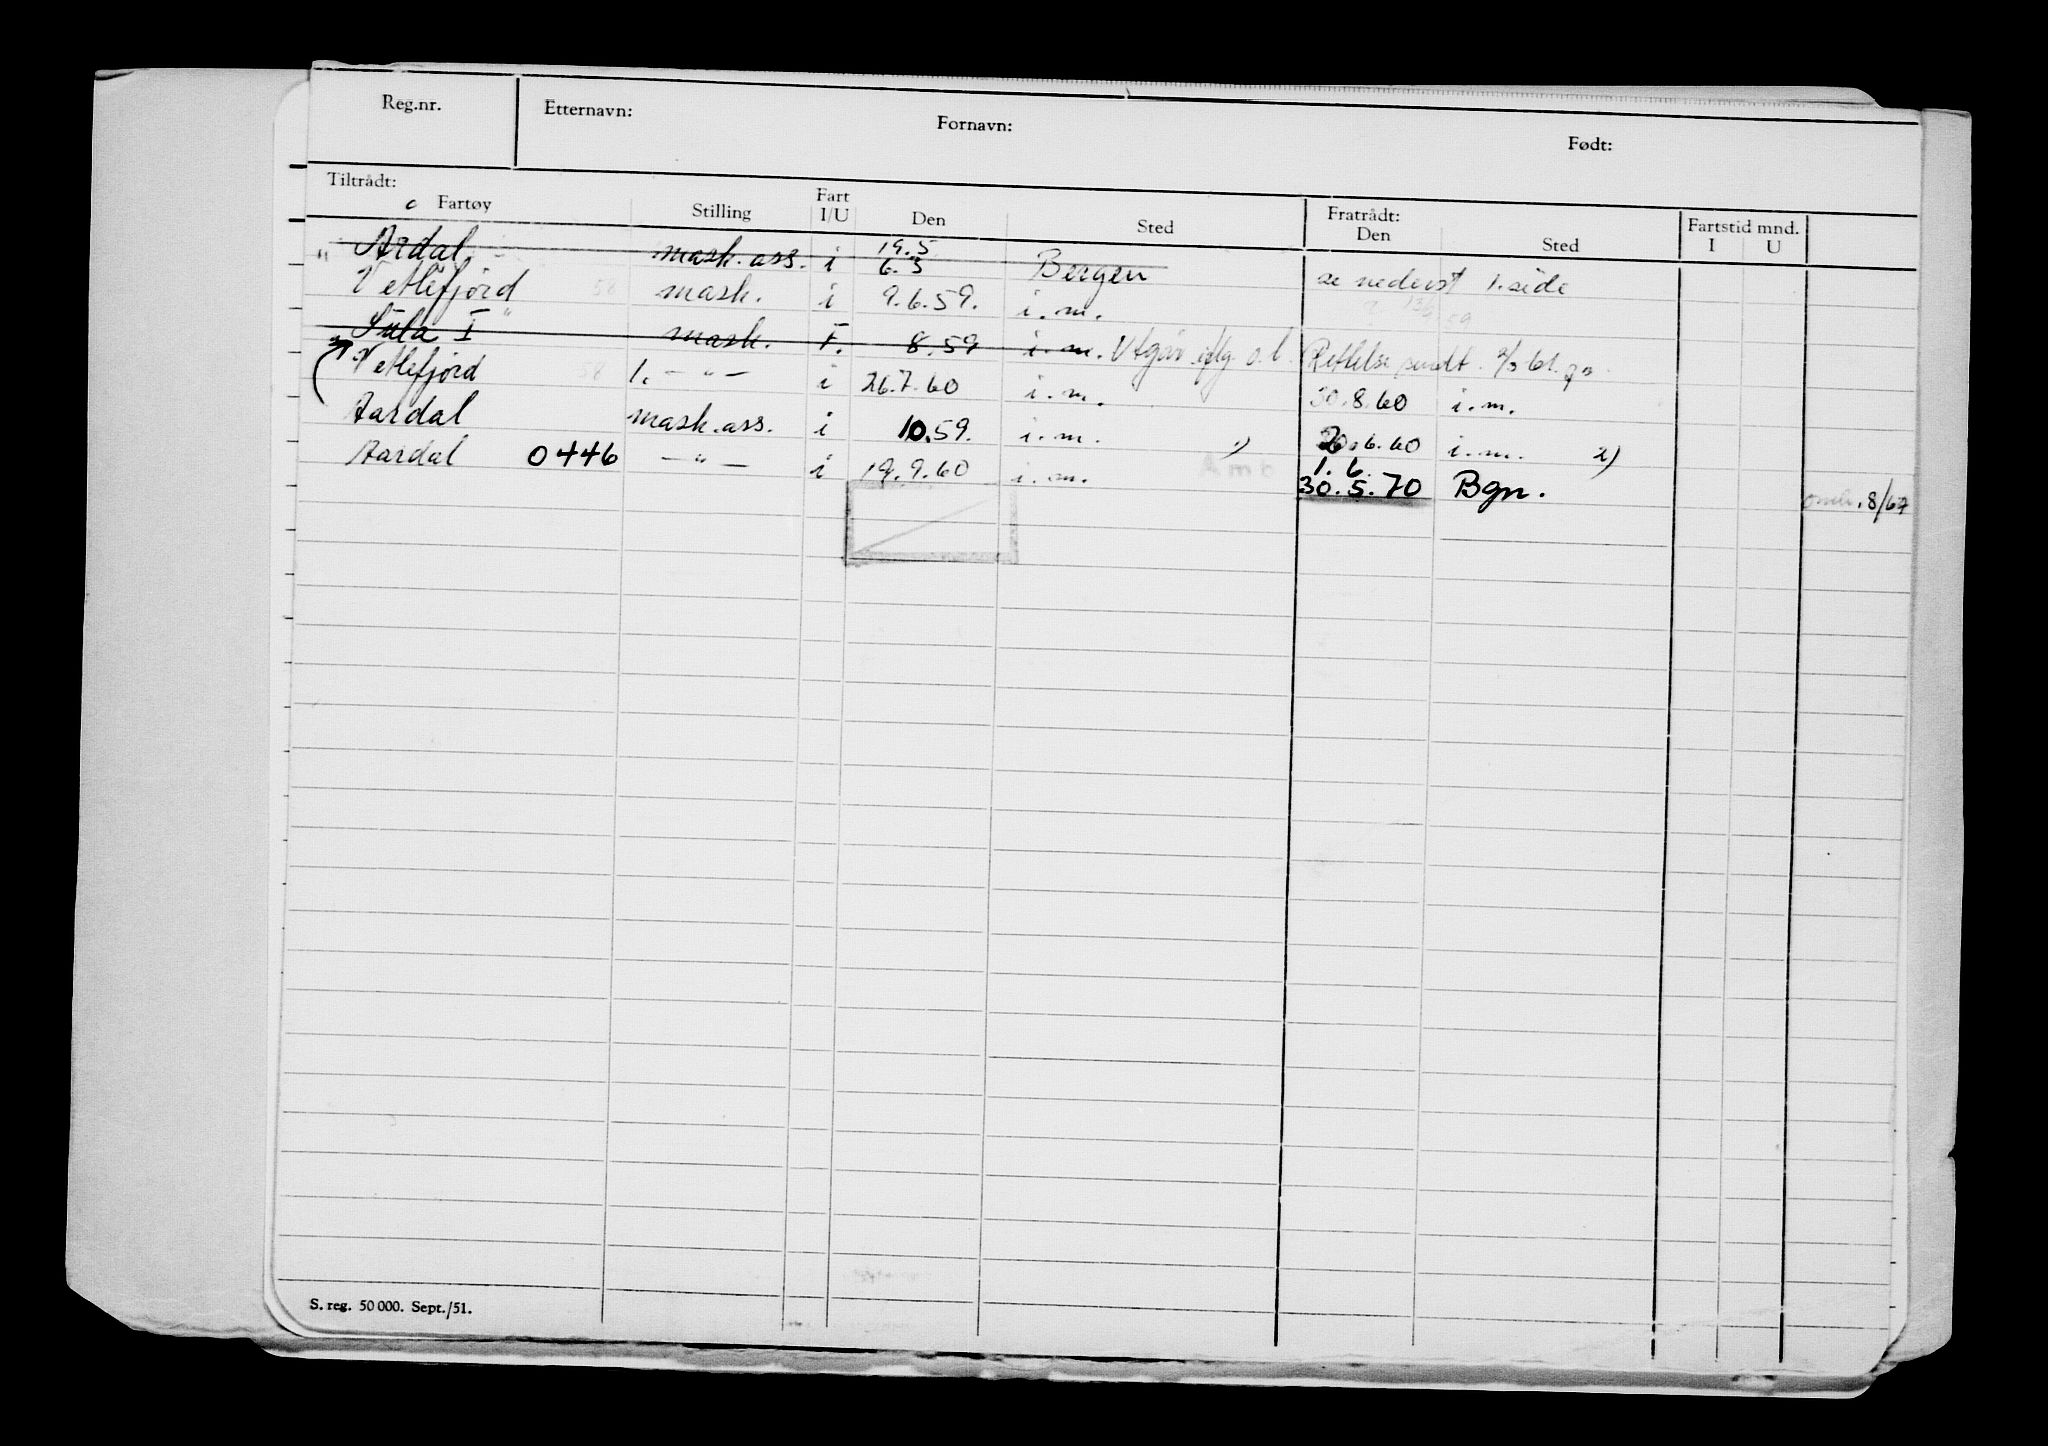 Reg.nr. Etternavn: Fornavn: Født:
Tiltrådt: Fartøy Stilling Fart I/U Den Sted Fratrådt: Den Sted Fartstid mnd. I U
" Årdal mask. ass. i 19.5 6.3 Bergen se nederst 1. side
Vetlefjord mask. i 9.6.59. i.m.
Sula I " mask. F. 8.59 i.m. Utgår iflg. o.l. Rettelse sendt
Vetlefjord 58 1. — " — i 26.7.60 i.m. 30.8.60 i.m.
Aardal mask.ass. i 10.59. i.m. 1) 20.6.60 i.m. 2)
Aardal 0446 — " — i 19.9.60 i.m. 1.6. 30.5.70 Bgn. 8/67
S. reg. 50 000. Sept./51.